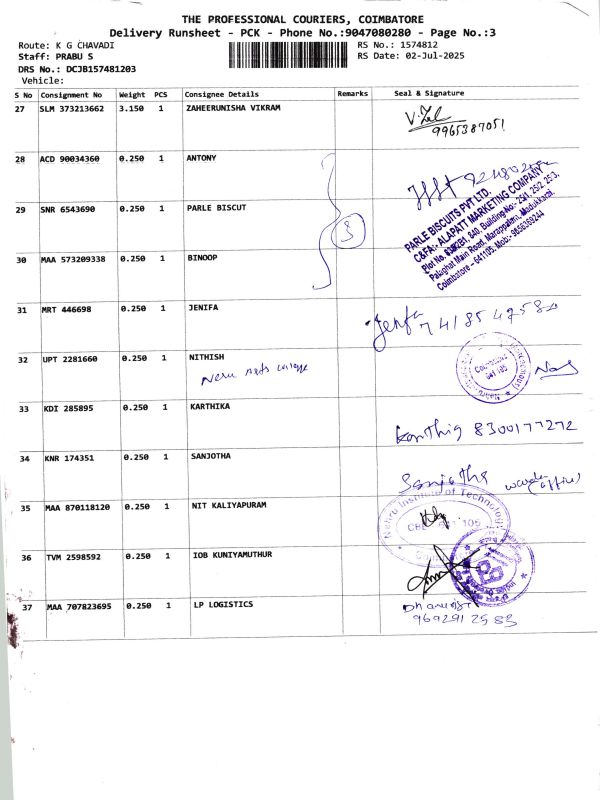 THE PROFESSIONAL COURIERS, COIMBATORE
Delivery Runsheet - PCK - Phone No.:9047080280 - Page No.:3
Route: K G CHAVADI
RS No.: 1574812
Staff: PRABU S
RS Date: 02-Jul-2025
DRS No.: DCJB157481203
Vehicle:
S No Consignment No Weight PCS Consignee Details Remarks Seal & Signature
27 SLM 373213662 3.150 1 ZAHEERUNISHA VIKRAM
9965387051
28 ACD 90034360 0.250 1 ANTONY
29 SNR 6543690 0.250 1 PARLE BISCUT
3
PARLE BISCUITS PVT LTD.
C&FA:- ALAPATT MARKETING COMPANY
Palghat Main Road, Marappalam, Madukkarai,
Coimbatore - 641105. Mob:-
30 MAA 573209338 0.250 1 BINOOP
31 MRT 446698 0.250 1 JENIFA
Jenifa
32 UPT 2281660 0.250 1 NITHISH
Neru Arts college
33 KDI 285895 0.250 1 KARTHIKA
Karthig 8300177272
34 KNR 174351 0.250 1 SANJOTHA
Sanjotha
(office)
35 MAA 870118120 0.250 1 NIT KALIYAPURAM
Nehru Institute of Technology
36 TVM 2598592 0.250 1 IOB KUNIYAMUTHUR
37 MAA 707823695 0.250 1 LP LOGISTICS
9692912583